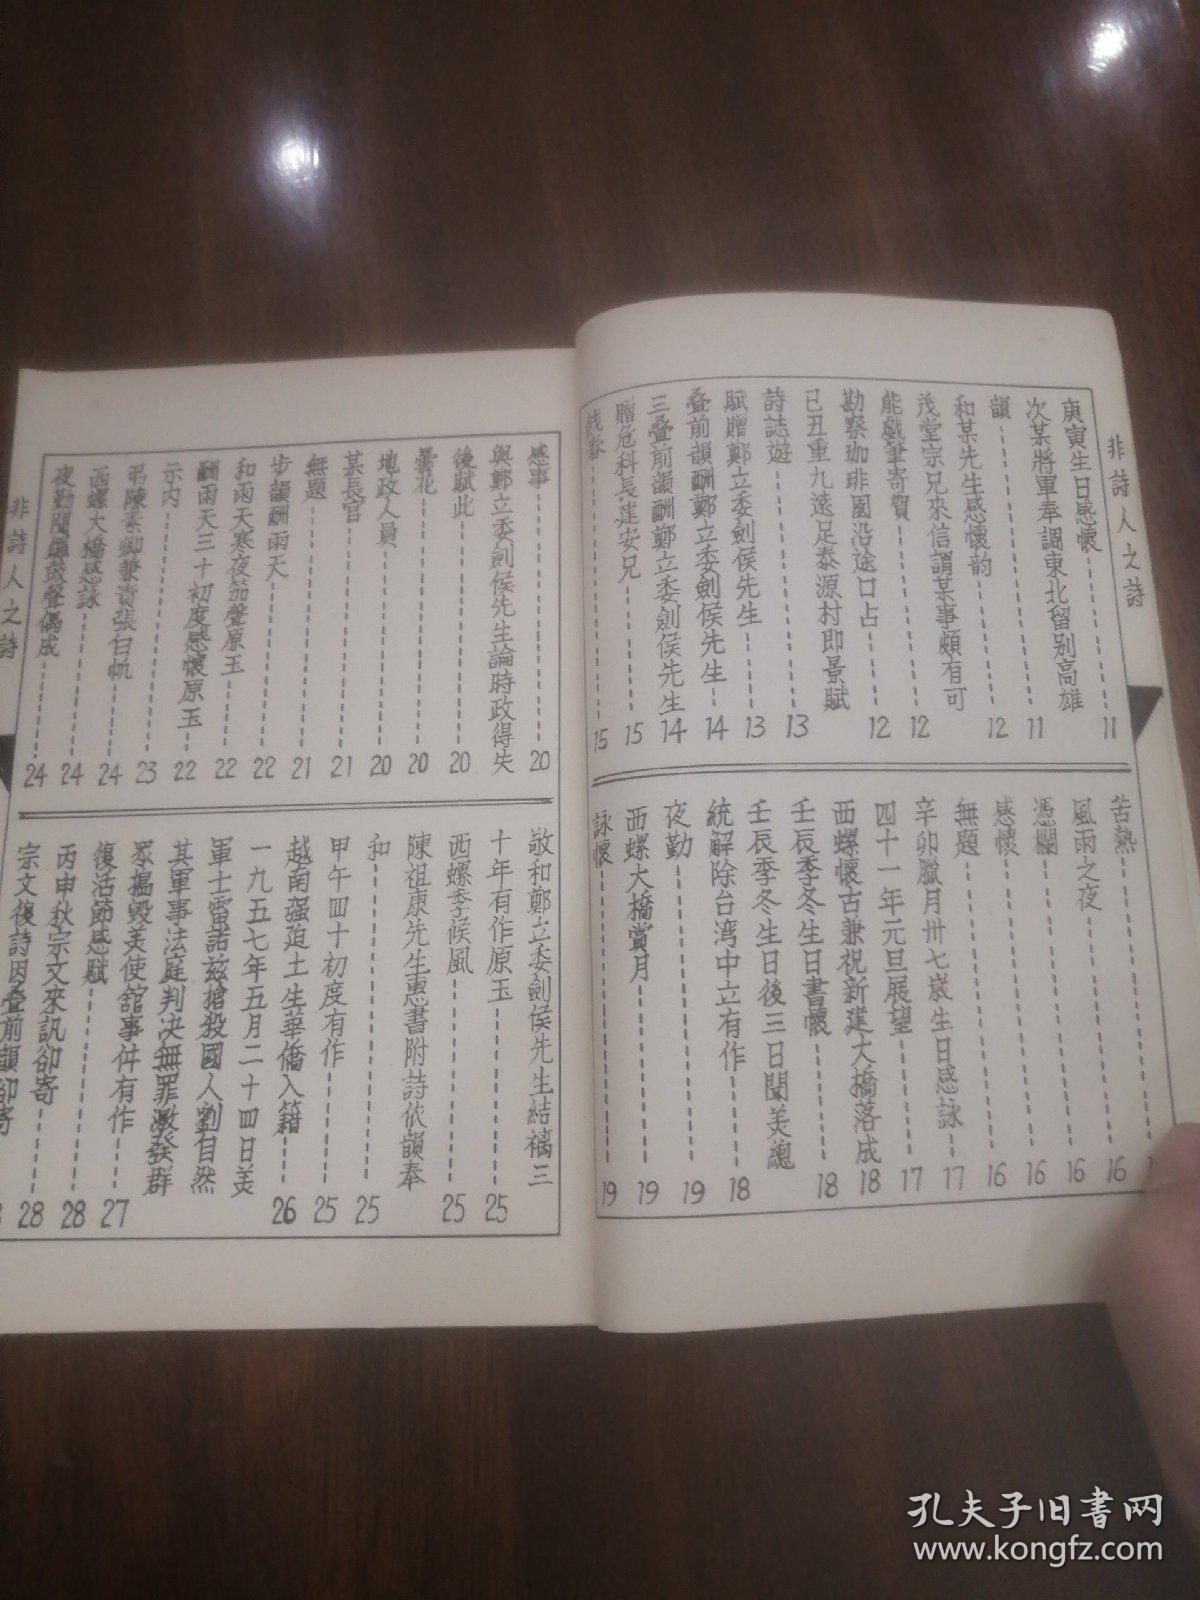 非詩人之詩
庚寅生日感懷 11
次某將軍奉調東北留別高雄
韻 11
和某先生感懷韵 12
茂堂宗兄來信謂某事頗有可
能戲筆寄賀 12
勘察珈琲園沿途口占 12
己丑重九遠足泰源村即景賦
詩誌遊 13
賦贈鄭立委劍侯先生 13
叠前韻酬鄭立委劍侯先生 14
三叠前韻酬鄭立委劍侯先生 14
贈危科長建安兄 15
餞春 15
苦熱 16
風雨之夜 16
憑欄 16
感懷 16
無題 17
辛卯臘月卅七歲生日感詠 17
四十一年元旦展望 17
西螺懷古兼祝新建大橋落成 18
壬辰季冬生日書懷 18
壬辰季冬生日後三日聞美總
統解除台湾中立有作 18
夜勤 19
西螺大橋賞月 19
詠懷 19
感事 20
與鄭立委劍侯先生論時政得失
後賦此 20
曇花 20
地政人員 20
某長官 21
無題 21
步韻酬雨天 22
和雨天寒夜笳聲原玉 22
酬雨天三十初度感懷原玉 22
示內 23
弔陳素卿兼責張白帆 24
西螺大橋感詠 24
夜勤聞鑼鼓聲偶成 24
敬和鄭立委劍侯先生結褵三
十年有作原玉 25
西螺季候風 25
陳祖康先生惠書附詩依韻奉
和 25
甲午四十初度有作 25
越南强迫土生華僑入籍 26
一九五七年五月二十四日美
軍士雷諾兹槍殺國人劉自然
其軍事法庭判决無罪激發群
眾搗毀美使舘事件有作 27
復活節感賦 28
丙申秋宗文來訊卻寄 28
宗文復詩因叠前韻卻寄
非詩人之詩
孔夫子旧书网
www.kongfz.com